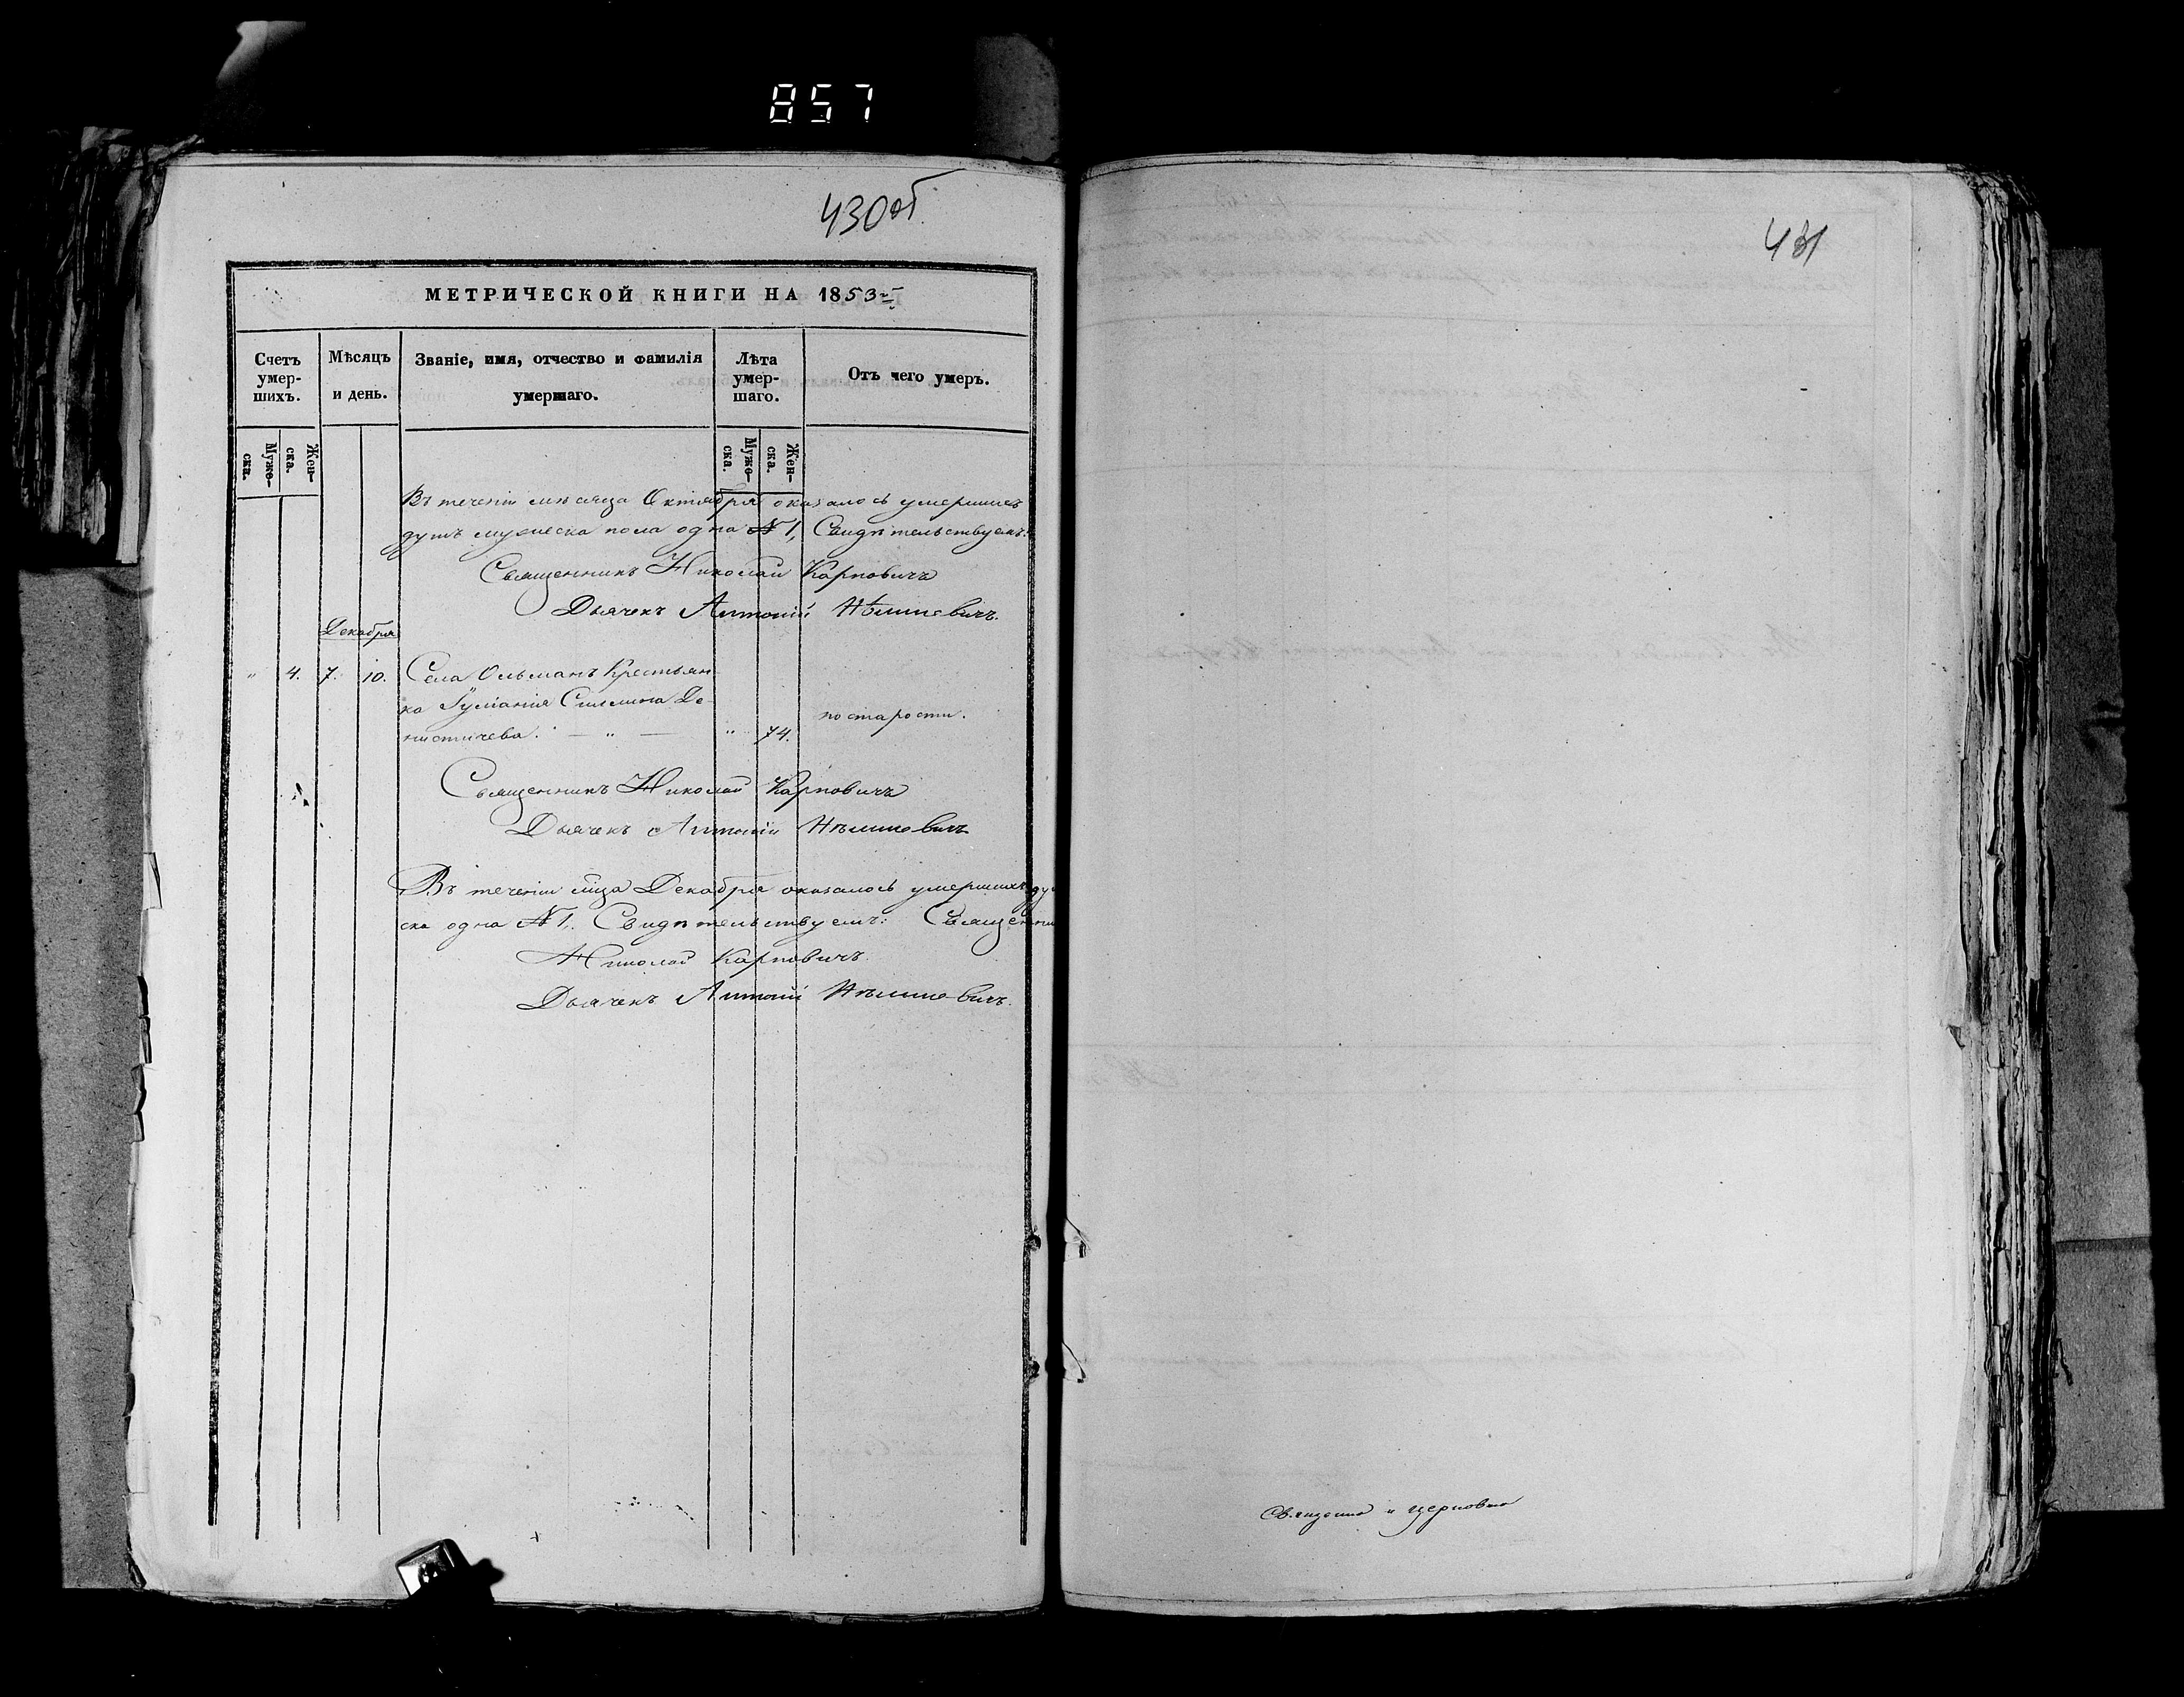 857
430об.
МЕТРИЧЕСКОЙ КНИГИ НА 1853 г.
Счетъ умер-шихъ.
Мѣсяцъ и день.
Званіе, имя, отчество и фамилія умершаго.
Лѣта умер-шаго.
Отъ чего умеръ.
Муже-ска.
Жен-ска.
Муже-ска.
Жен-ска.
Въ теченіи мѣсяца Октября оказалось умершихъ
душъ мужеска пола одна № 1, Свидѣтельствуемъ:
Священникъ Николай Карповичъ
Дьячекъ Антоній
Декабря
" 4. 7. 10. Села Ольманъ Крестьян-
ка Де-
нистичева. — " — " 74. по старости.
Священникъ Николай Карповичъ
Дьячекъ Антоній
Въ теченіи мца Декабря оказалось умершихъ
ска одна № 1,. Свидѣтельствуемъ: Священни
Николай Карповичъ.
Дьячекъ Антоній
431
Священно и церковно